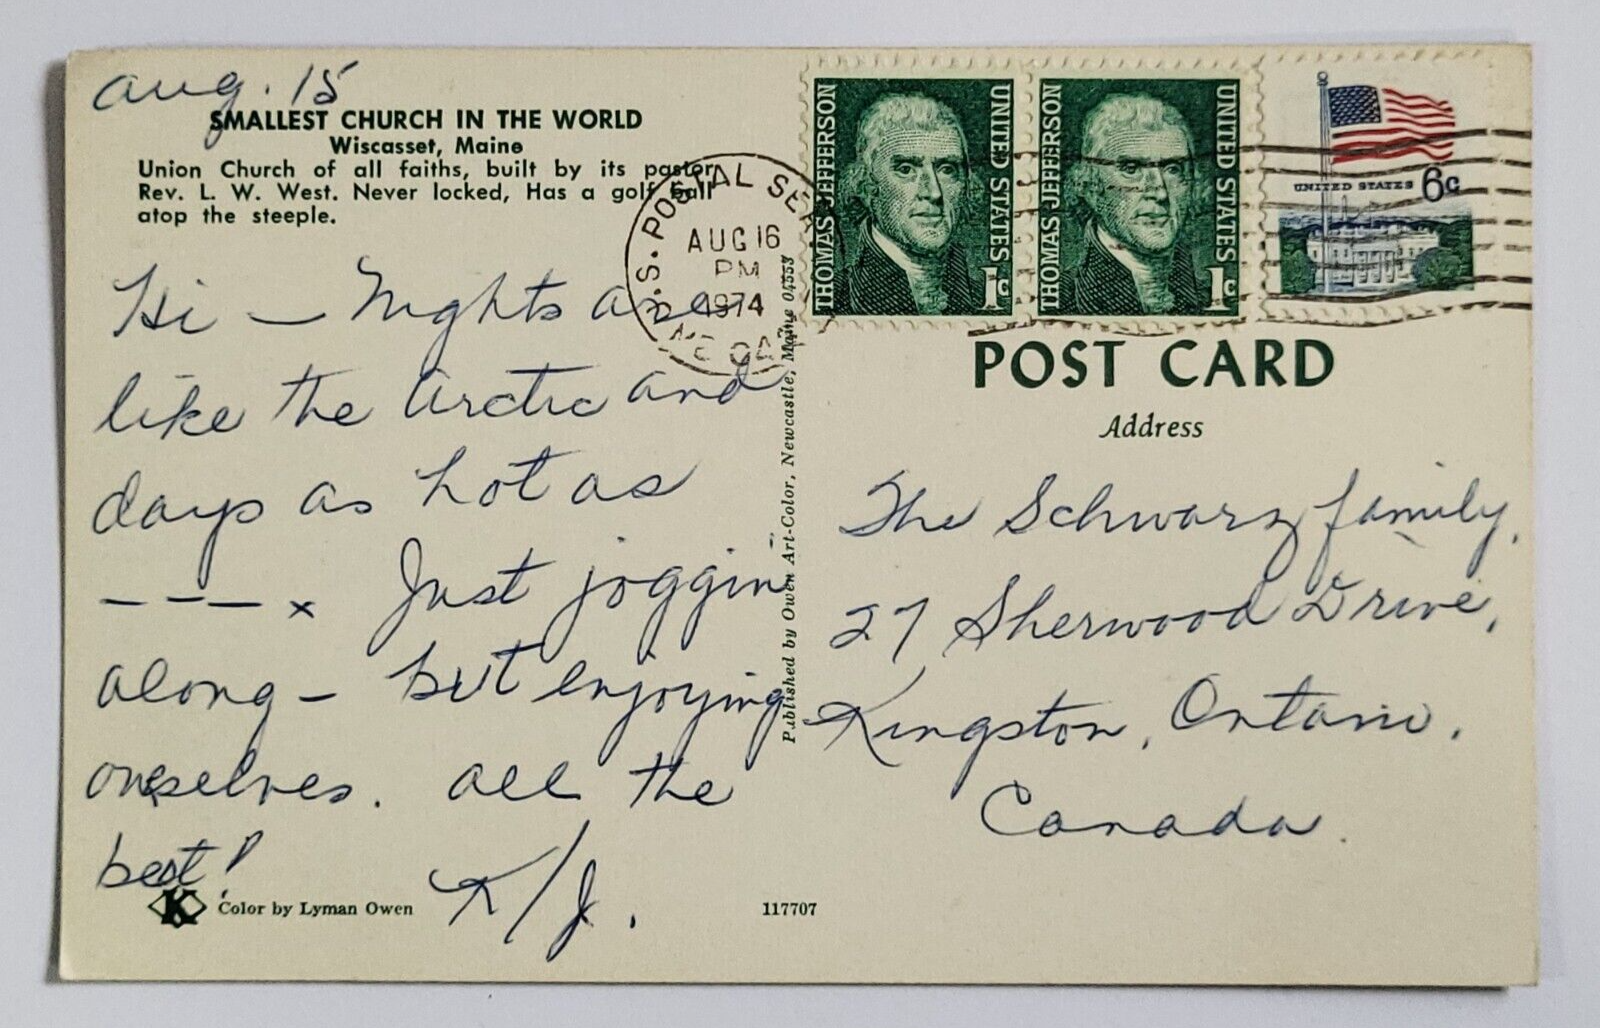 Aug. 15
SMALLEST CHURCH IN THE WORLD
Wiscasset, Maine
Union Church of all faiths, built by its pastor
Rev. L. W. West. Never locked, Has a golf ball
atop the steeple.
Hi — Nights are
like the Arctic and
days as hot as
– – – x Just joggin
along – but enjoying
ourselves. All the
best!
K/J.
K Color by Lyman Owen
117707
Published by Owen Art-Color, Newcastle, Maine 04553
U.S. POSTAL SER
AUG 16
PM
1974
THOMAS JEFFERSON
UNITED STATES
1c
THOMAS JEFFERSON
UNITED STATES
1c
UNITED STATES 6c
POST CARD
Address
The Schwarz family,
27 Sherwood Drive,
Kingston, Ontario,
Canada.